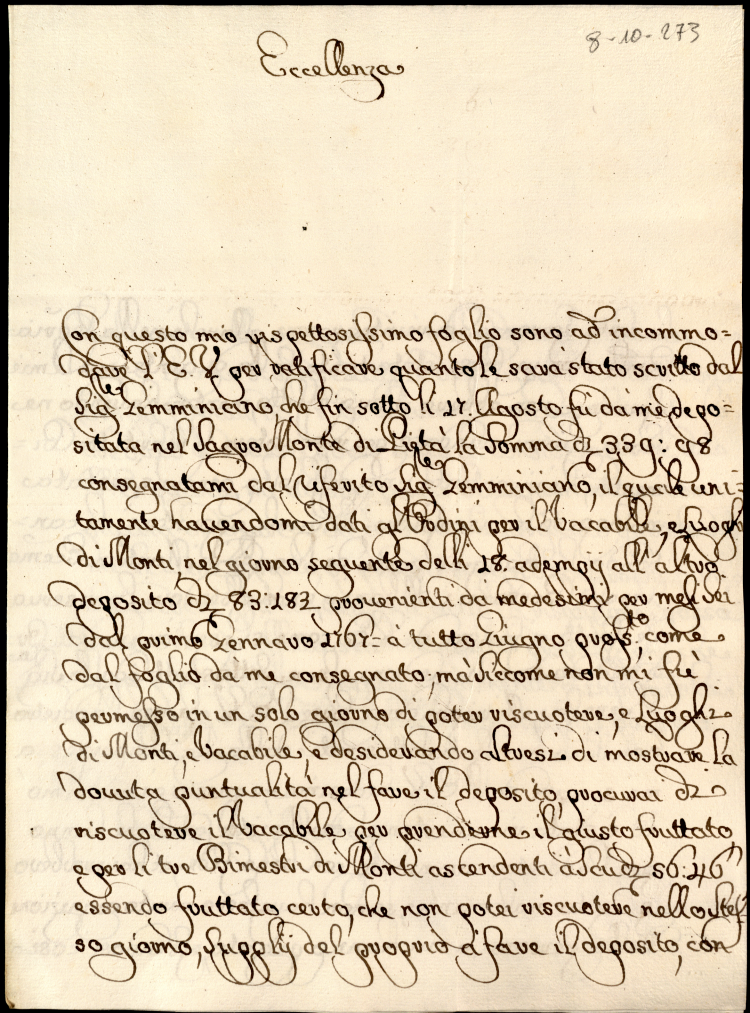 8-10-273
Eccellenza
Con questo mio rispettosissimo foglio sono ad incommo=
dare l'E. V. per ratificare quanto le sarà stato scritto dal
Sig.re Zemminiano, che fin sotto li 17. Agosto fù da me depo=
sitata nel Sagro Monte di Pietà la Somma di 339:98
consegnatami dal riferito Sig.re Zemminiano, il quale uni=
tamente havendomi dati gl'Ordini per il Vacabile, e Luoghi
di Monti, nel giorno seguente delli 18. adempij all'altro
deposito di 83:18½ provenienti da medesimi per mesi sei
dal primo Gennaro 1767= à tutto Giugno pross.to, come
dal foglio da me consegnato; mà siccome non mi fù
permesso in un solo giorno di poter riscuotere, e Luoghi
di Monti, e Vacabile, e desiderando altresi di mostrare la
dovuta puntualità nel fare il deposito, procurai di
riscuotere il Vacabile per prenderne il giusto fruttato,
e per li tre Bimestri di Monti ascendenti à Scudi 56:46
essendo fruttato certo, che non potei riscuotere nello stes=
so giorno, supplij del proprio a fare il deposito, con